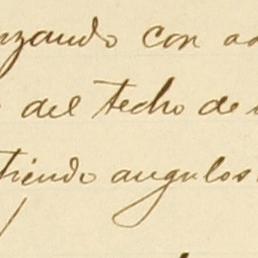 nzando con
del techo de
tiendo angulos